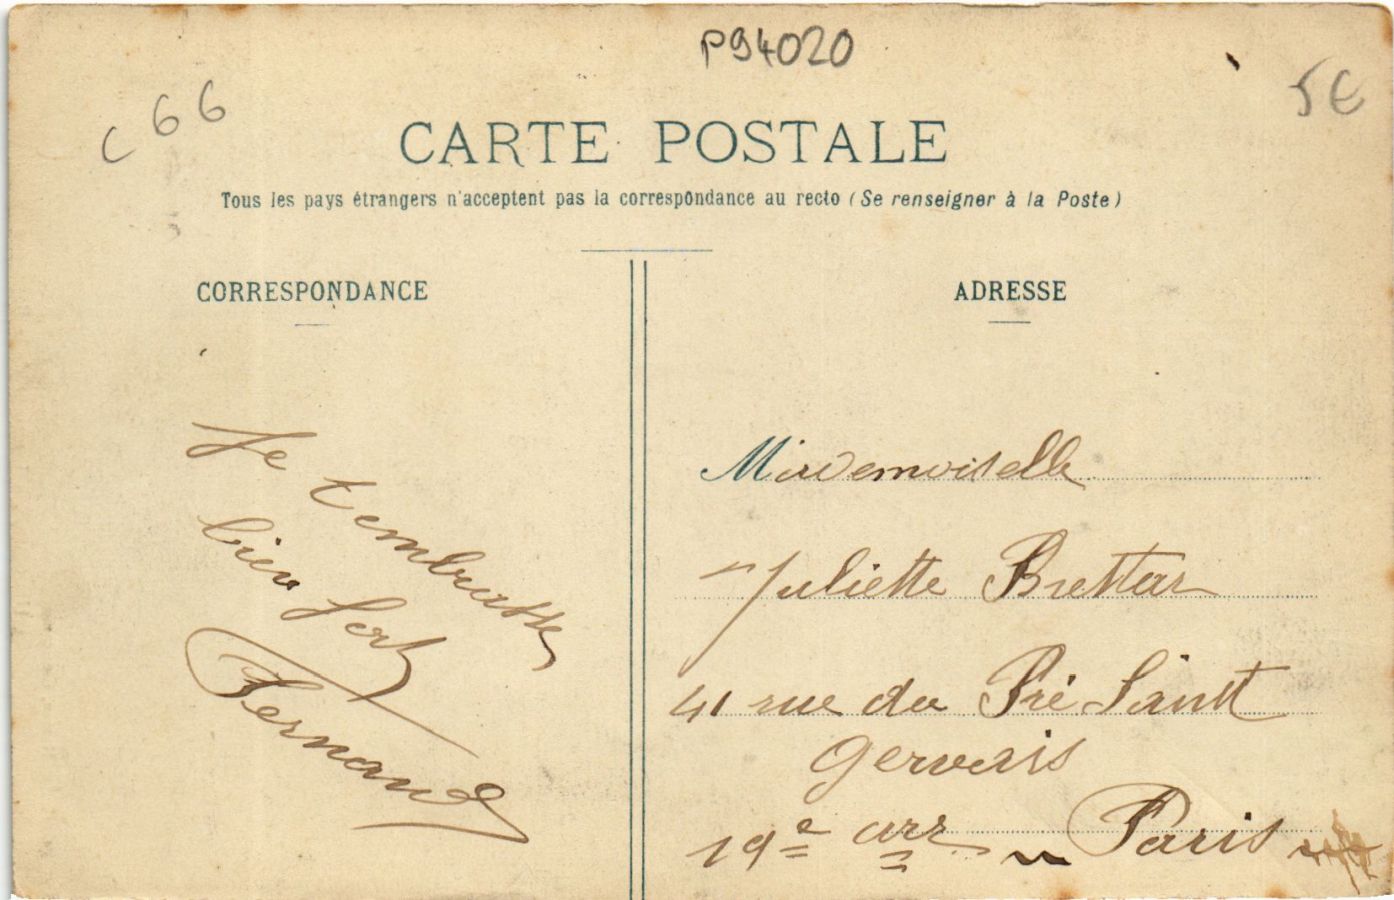 P94020
5€
C 66
CARTE POSTALE
Tous les pays étrangers n'acceptent pas la correspondance au recto (Se renseigner à la Poste)
CORRESPONDANCE
Je
t'embrasse
bien fort
Fernand
ADRESSE
Mademoiselle
Juliette
41 rue du Pré Saint
Gervais
19e arr Paris